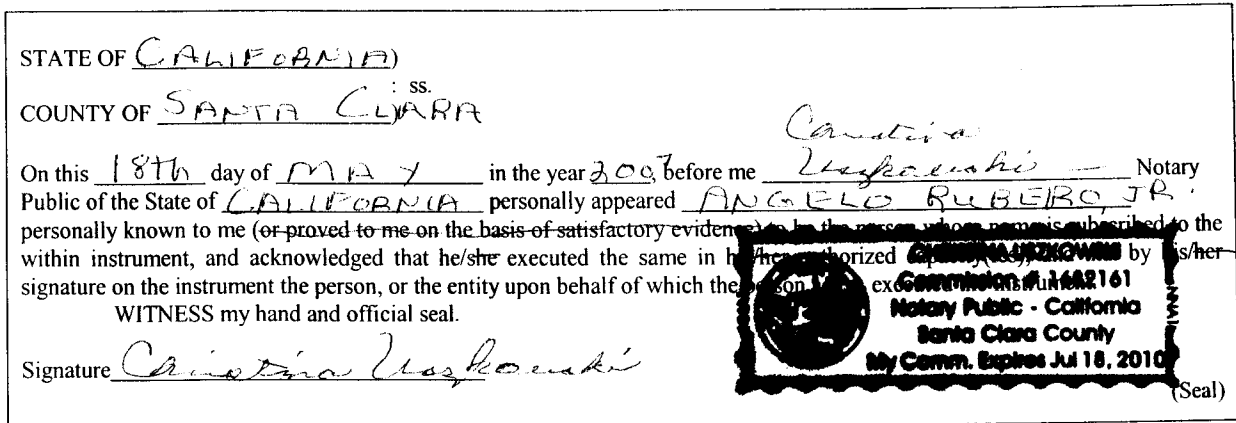 STATE OF CALIFORNIA)
: ss.
COUNTY OF SANTA CLARA
Christina
On this 18th day of MAY in the year 2007 before me Uszkowski — Notary
Public of the State of CALIFORNIA personally appeared ANGELO RUBEIRO, JR.
personally known to me (or proved to me on the basis of satisfactory evidence) to be the person whose name is subscribed to the
within instrument, and acknowledged that he/she executed the same in authorized by his/her
signature on the instrument the person, or the entity upon behalf of which the
WITNESS my hand and official seal.
Signature Christina Uszkowski
CHRISTINA USZKOWSKI
Commission # 1682161
Notary Public - California
Santa Clara County
My Comm. Expires Jul 18, 2010
(Seal)